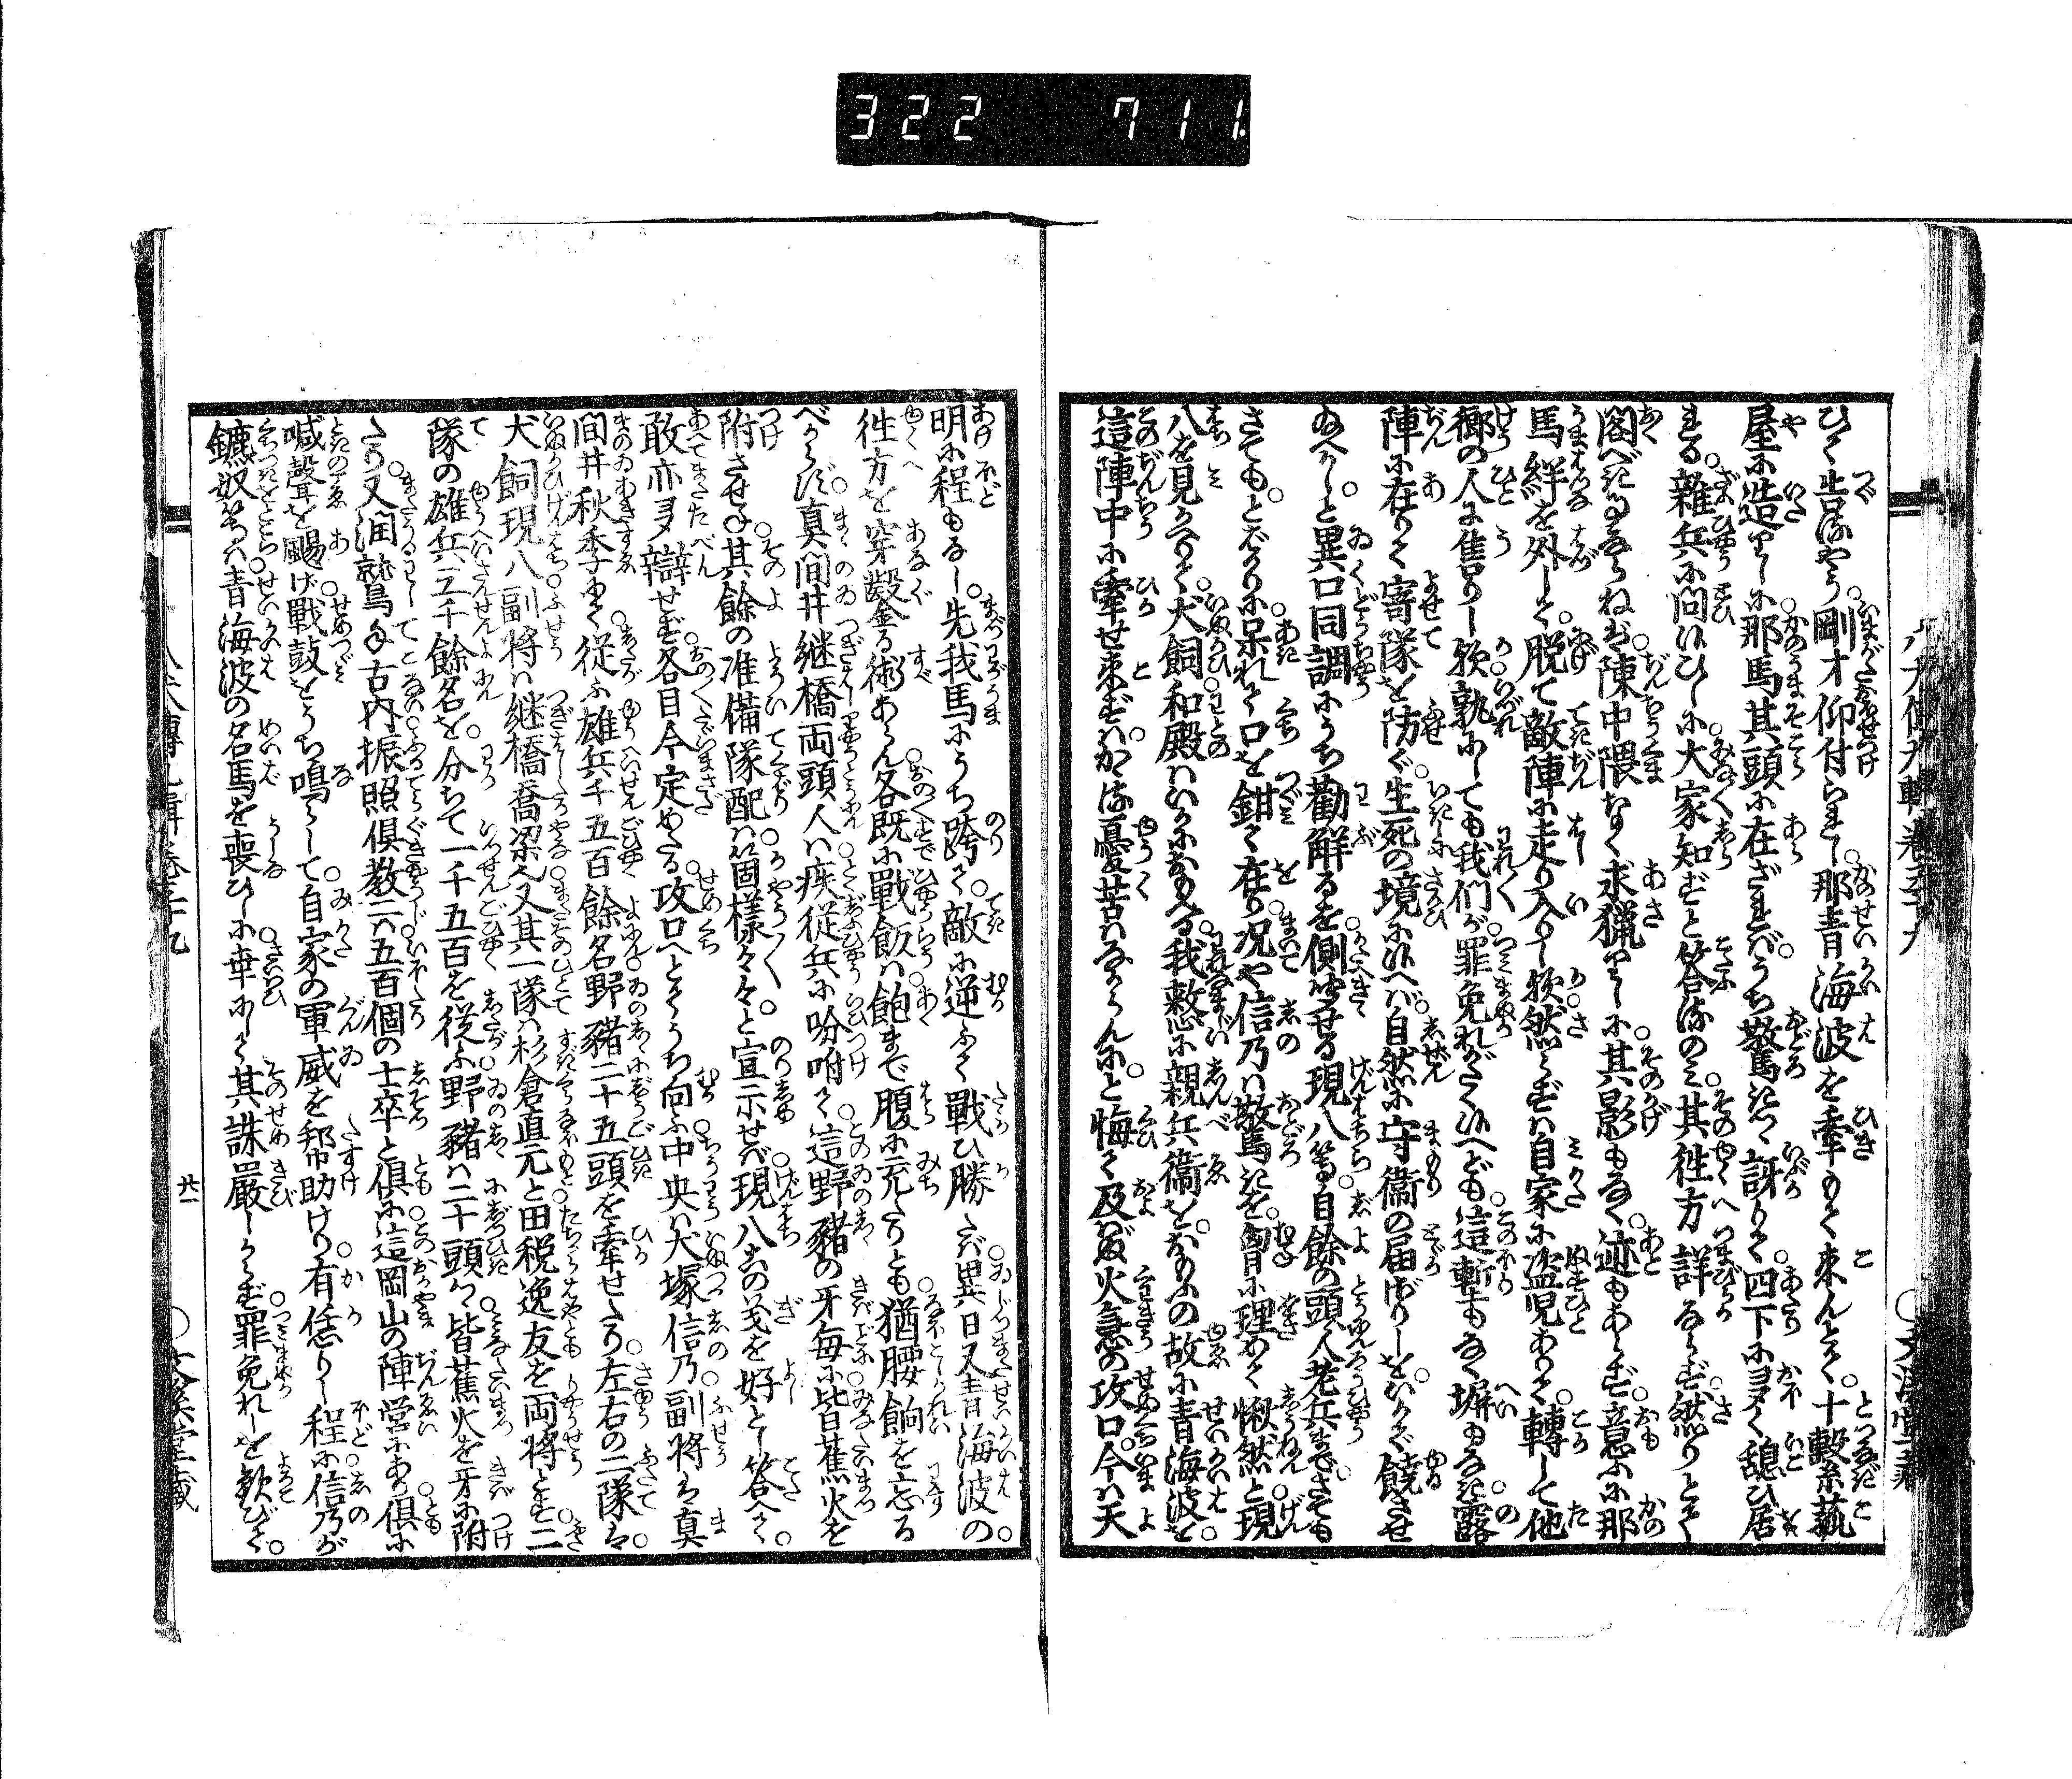 322 711
ひて告るやう剛才仰付られし那青海波を牽もて来んとて十繋索執
屋に造りしに那馬其頭に在ざればうち驚きつゝ訝りて四下にヨク憩ひ居
る雜兵に問ひしに大家知ずと答るのみ其徃方詳ならず然りとて
閣べきならねば陳中隈なく求猟りしに其影もなく迹もあらず意ふに那
馬絆を外して脱て敵陣に走り入りし欤然らずは自家に盗児ありて轉して他
郷の人に售りし欤孰にしても我們が罪免れがたくいへども這暫もなく塀もなき露
陣に在りて寄隊を防ぐ生死の境にいへば自然に守衛の届ざりしをいかで饒させ
給へかしと異口同調にうち勸解るを側聞せる現八等自餘の頭人老兵までさても
さてもとばかりに呆れて口を鉗て在り况や信乃は驚きを胸に理めて愀然と現
八を見かへりて犬飼和殿はいかにおもへる我愁に親兵衞をおもふの故に青海波を
這陣中に牽せ来ずはかゝる憂苦はなからんにと悔て及ぬ火急の攻口今は天
明に程もなし先我馬にうち跨て敵に逆ふて戰ひ勝たば異日又青海波の
徃方を穿鑿る術あらん各既に戰飯は飽まで腹に充たりとも猶腰餉を忘る
べからず真間井継橋両頭人は疾従兵に吩咐て這野豬の牙毎に皆蕉火を
附させよ其餘の准備隊配は箇樣々々と宣示せば現八其の議を好として答へて
敢亦多辯せず各目今定めたる攻口へとてうち向ふ中央は犬塚信乃副将は真
間井秋季にて従ふ雄兵千五百餘名野豬二十五頭を牽せたり左右の二隊は
犬飼現八副将は継橋喬梁又其一隊は杉倉直元と田税逸友を両将とす二
隊の雄兵三千餘名を分ちて一千五百を従ふ野豬は二十頭づゝ皆蕉火を牙に附
たり又潤鷲手古内振照倶教二は五百個の士卒と倶に這岡山の陣営にあり倶に
喊聲を颺げ戰鼓をうち鳴らして自家の軍威を幇助けり有恁りし程に信乃が
鑣奴等は青海波の名馬を喪ひしに幸にして其誅嚴しからず罪免れしを歓びて
廿一